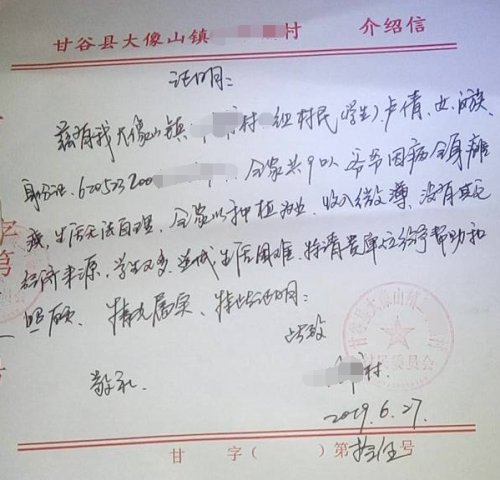 甘谷县大像山镇 村 介绍信
证明:
兹有我大像山镇 村 组村民(学生)卢倩、女、汉族、
身份证:620523200 全家共9口人 爷爷因病全身瘫
痪,生活无法自理,全家以种植为业,收入微薄,没有其它
经济来源,学生又多,造成生活困难,特请贵单位给予帮助和
照顾。情况属实、特此证明:
此致
敬礼.
村.
2019.6.27.
甘 字( )第 号